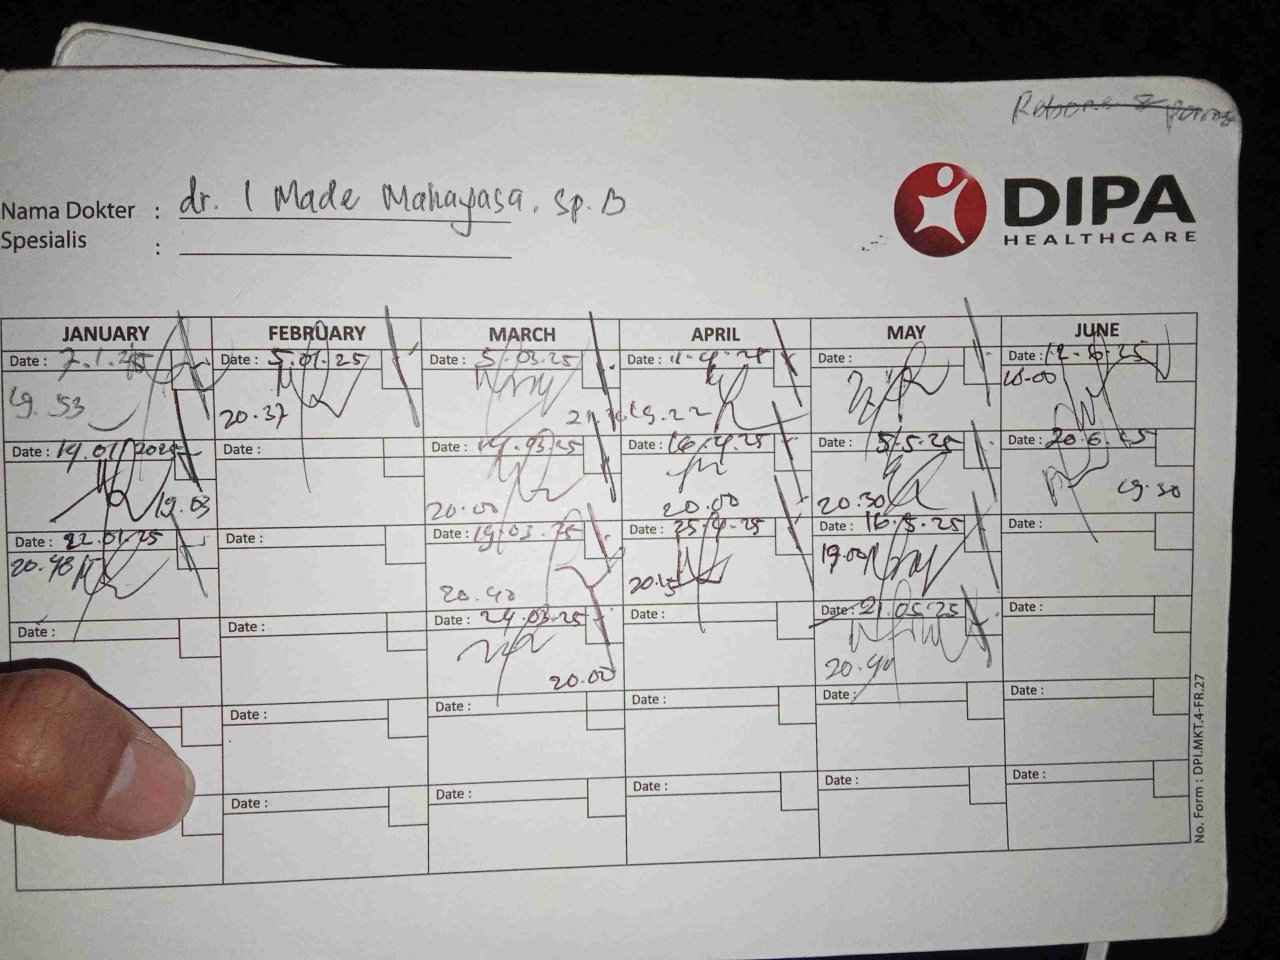 Nama Dokter : dr. I Made Mahayasa. Sp. B
Spesialis :
DIPA
HEALTHCARE
JANUARY FEBRUARY MARCH APRIL MAY JUNE
Date : 7.1.25 Date : 5.01.25 Date : 5.03.25 Date : Date : Date : 12-6-25
19.53 20.37 19.22 18.00
Date : 14.01.2025 Date : Date : 14.03.25 Date : 16.4.25 Date : 5.5.25 Date : 20.6.25
19.03 20.00 20.00 20.30 19.30
Date : 22.01.25 Date : Date : 19.03.25 Date : 25.4.25 Date : 16.5.25 Date :
20.48 20.40 20.15 19.00
Date : Date : Date : 24.03.25 Date : Date : 21.05.25 Date :
20.00 20.40
Date : Date : Date : Date : Date :
Date : Date : Date : Date : Date :
No. Form : DPI.MKT.4-FR.27